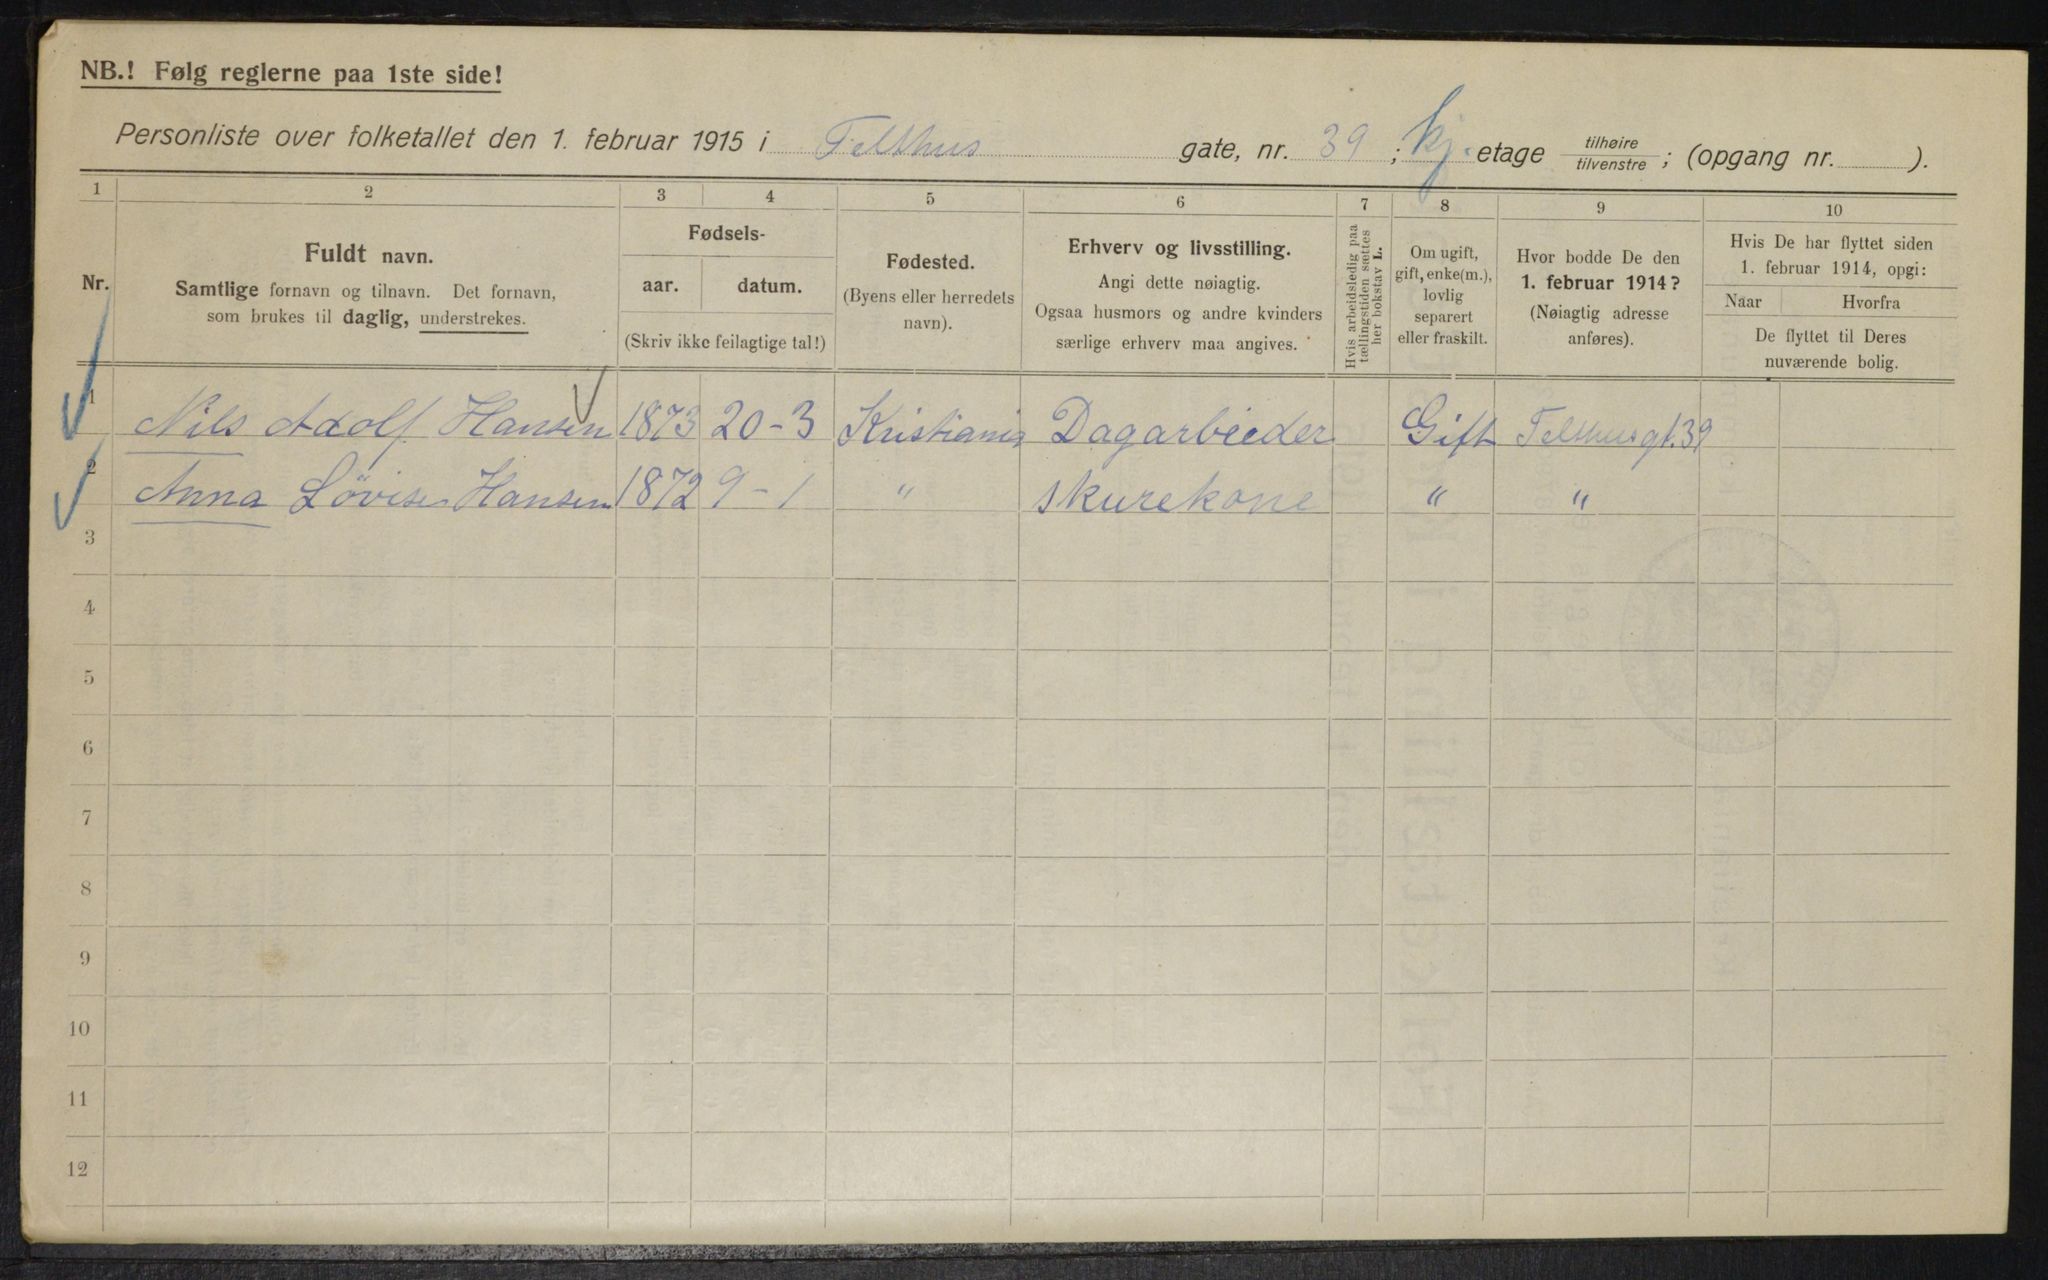 NB.! Følg reglerne paa 1ste side!
Personliste over folketallet den 1. februar 1915 i Felthus gate, nr. 39 ; kj. etage tilhøire tilvenstre ; (opgang nr. ).
1 2 3 4 5 6 7 8 9 10
Nr.
Fuldt navn.
Samtlige fornavn og tilnavn. Det fornavn,
som brukes til daglig, understrekes.
Fødsels-
aar. datum.
(Skriv ikke feilagtige tal!)
Fødested.
(Byens eller herredets
navn).
Erhverv og livsstilling.
Angi dette nøiagtig.
Ogsaa husmors og andre kvinders
særlige erhverv maa angives.
Hvis arbeidsledig paa
tællingstiden sættes
her bokstav L.
Om ugift,
gift, enke(m.),
lovlig
separert
eller fraskilt.
Hvor bodde De den
1. februar 1914?
(Nøiagtig adresse
anføres).
Hvis De har flyttet siden
1. februar 1914, opgi:
Naar Hvorfra
De flyttet til Deres
nuværende bolig.
1 Nils Adolf Hansen 1873 20-3 Kristiania Dagarbeider Gift Felthusgt. 39
2 Anna Lovise Hansen 1872 9-1 " skurekone " "
3
4
5
6
7
8
9
10
11
12